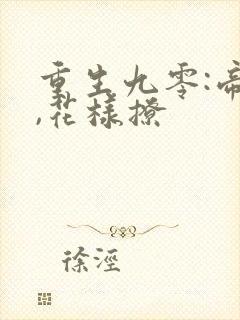 重生九零:帝
,花样撩
徐涇